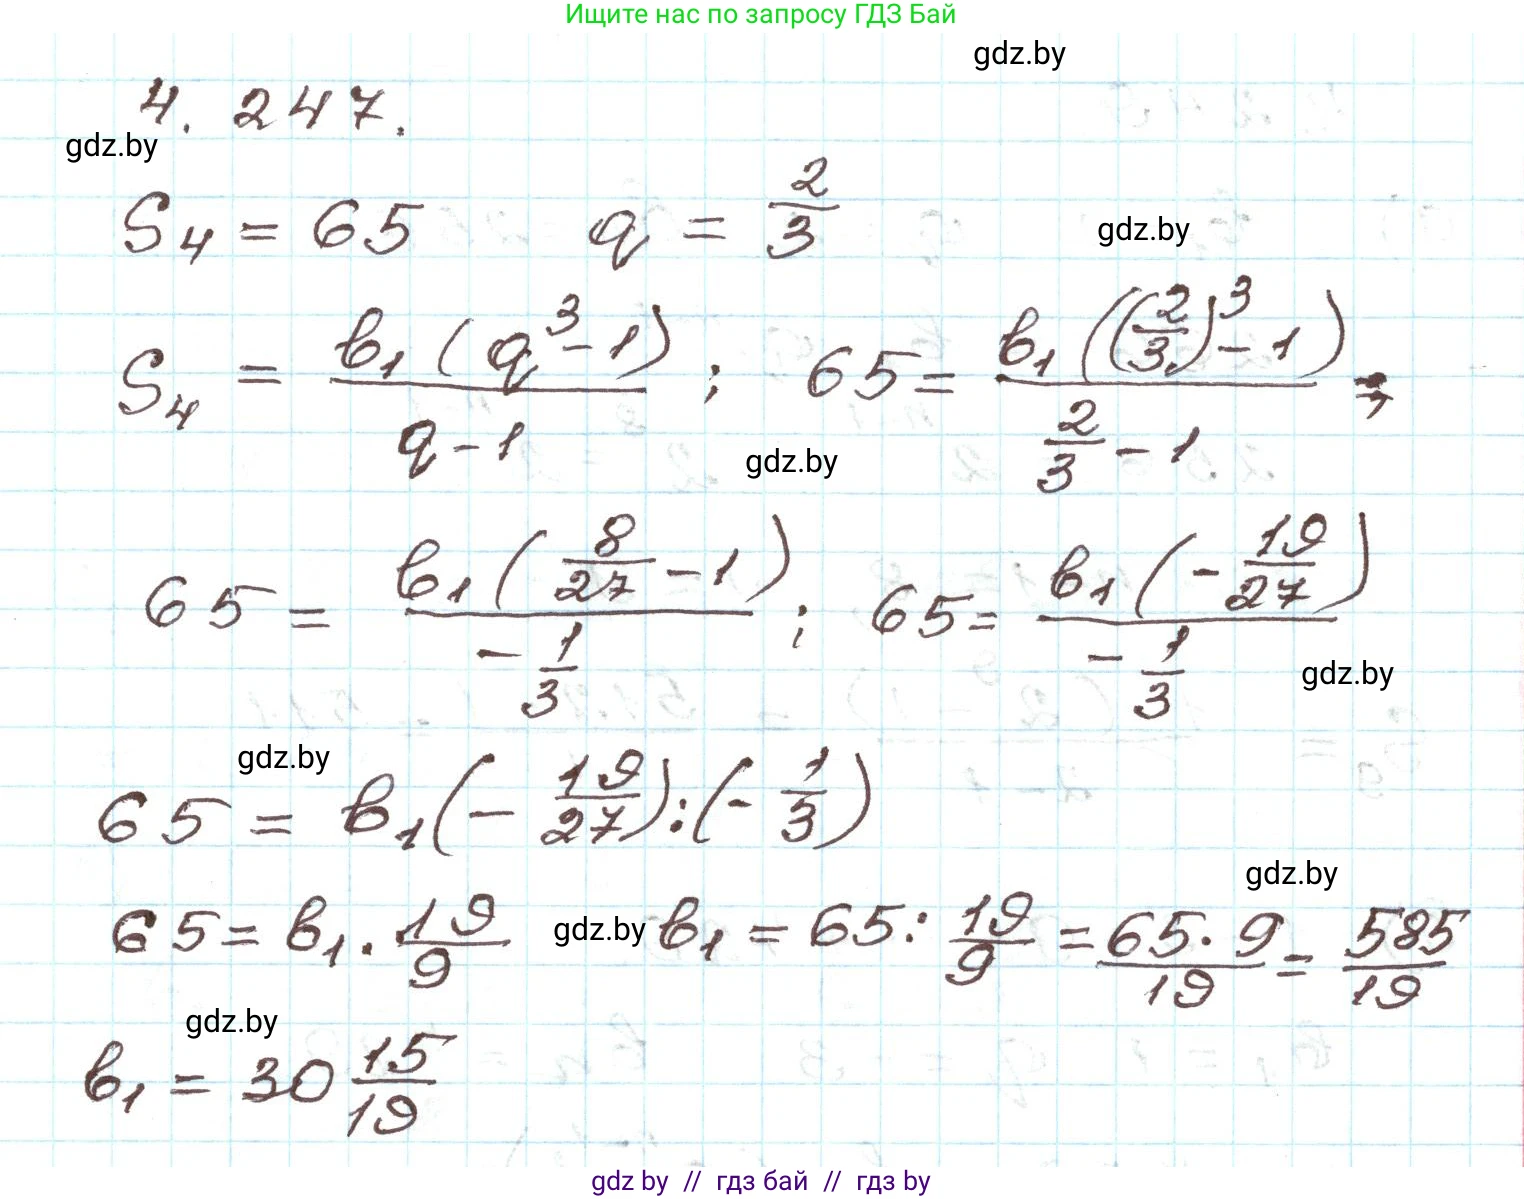 Ищите нас по запросу ГДЗ Бай
gdz.by
4. 247.
gdz.by
S₄ = 65 q = 2/3
gdz.by
S₄ = b₁ (q³ - 1) / (q - 1) ; 65 = b₁ ((2/3)³ - 1) / (2/3 - 1) ;
gdz.by
65 = b₁ (8/27 - 1) / (-1/3) ; 65 = b₁ (-19/27) / (-1/3)
gdz.by
gdz.by
65 = b₁ (- 19/27) : (- 1/3)
gdz.by
65 = b₁ · 19/9 gdz.by b₁ = 65 : 19/9 = 65 · 9 / 19 = 585/19
gdz.by
b₁ = 30 15/19
gdz by // гдз бай // гдз by